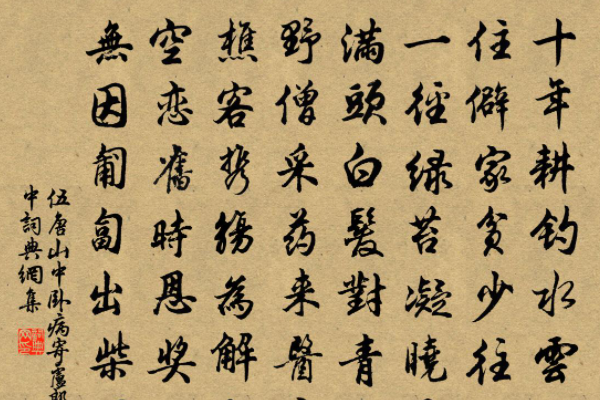 十年耕钓水雲
住僻家貧少往
一徑緑苔凝曉
滿頭白髮對青
野僧采药来醫
樵客携觴為解
空恋舊時恩奖
無因匍匐出柴
伍唐山中卧病寄盧郎
中詞典網集